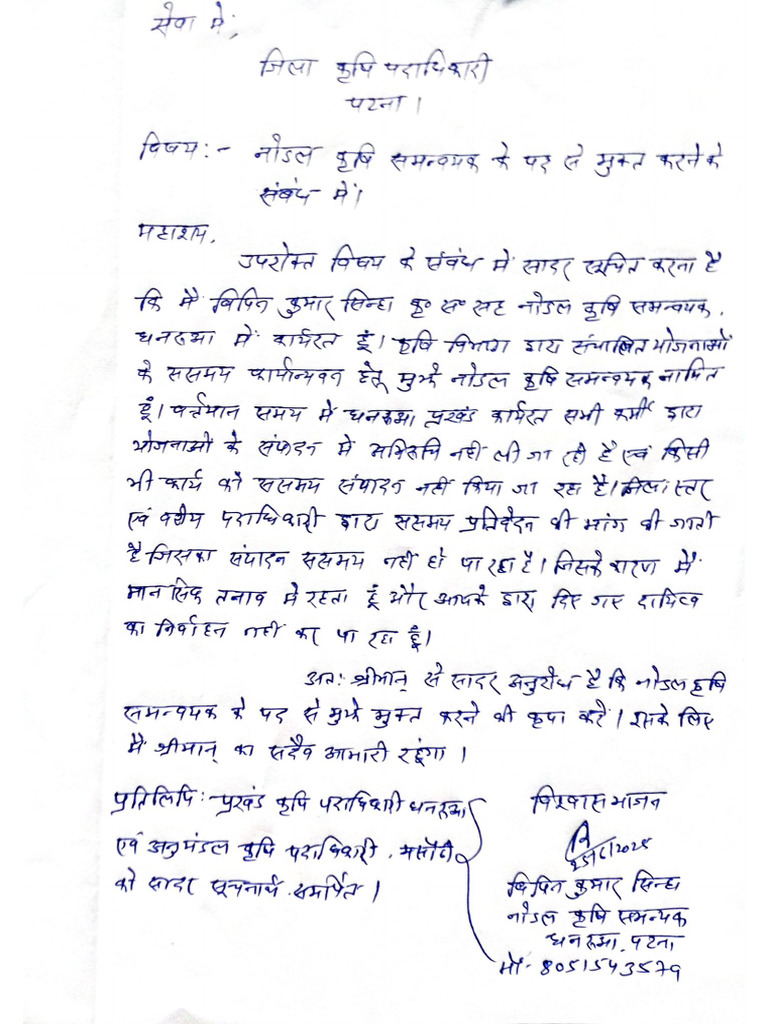 सेवा में,
जिला कृषि पदाधिकारी
पटना।
विषय:- नोडल कृषि समन्वयक के पद से मुक्त करने के
संबंध में।
महाशय,
उपरोक्त विषय के संबंध में सादर सूचित करना है
कि मैं बिपिन कुमार सिन्हा कृ० स० सह नोडल कृषि समन्वयक,
धनरूआ में कार्यरत हूं। कृषि विभाग द्वारा संचालित योजनाओं
के ससमय कार्यान्वयन हेतू मुझे नोडल कृषि समन्वयक नामित
हूं। वर्तमान समय में धनरूआ प्रखंड कार्यरत सभी कर्मी द्वारा
योजनाओं के संपादन में अभिरूचि नहीं ली जा रही है एवं किसी
भी कार्य को ससमय संपादन नहीं किया जा रहा है। जिला स्तर
एवं वरीय पदाधिकारी द्वारा ससमय प्रतिवेदन की मांग की जाती
है जिसका संपादन ससमय नहीं हो पा रहा है। जिसके कारण मैं
मानसिक तनाव में रहता हूं और आपके द्वारा दिए गए दायित्व
का निर्वाहन नहीं कर पा रहा हूँ।
अत: श्रीमान् से सादर अनुरोध है कि नोडल कृषि
समन्वयक के पद से मुझे मुक्त करने की कृपा करें। इसके लिए
मैं श्रीमान् का सदैव आभारी रहूंगा।
प्रतिलिपि:- प्रखंड कृषि पदाधिकारी धनरूआ
एवं अनुमंडल कृषि पदाधिकारी, मसौढी
को सादर सूचनार्थ समर्पित।
विश्वासभाजन
बिपिन कुमार सिन्हा
नोडल कृषि समन्यक
धनरूआ, पटना
मो- 8051543579